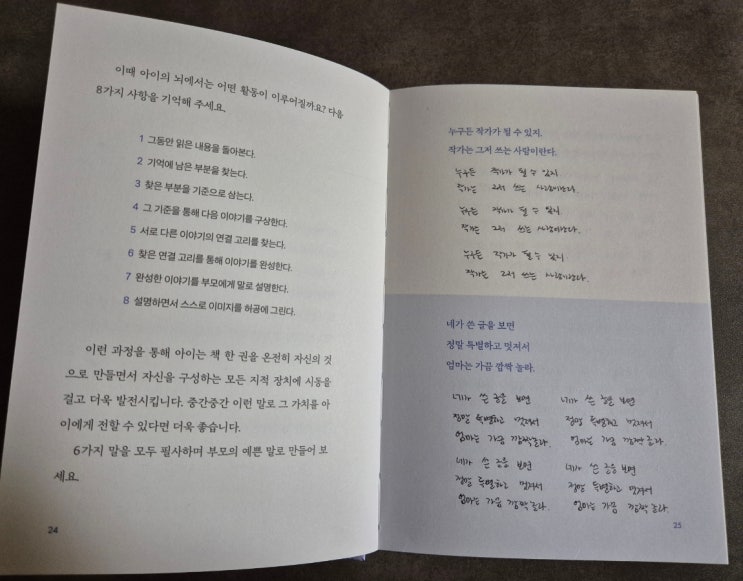 이때 아이의 뇌에서는 어떤 활동이 이루어질까요? 다음
8가지 사항을 기억해 주세요.
1 그동안 읽은 내용을 돌아본다.
2 기억에 남은 부분을 찾는다.
3 찾은 부분을 기준으로 삼는다.
4 그 기준을 통해 다음 이야기를 구상한다.
5 서로 다른 이야기의 연결 고리를 찾는다.
6 찾은 연결 고리를 통해 이야기를 완성한다.
7 완성한 이야기를 부모에게 말로 설명한다.
8 설명하면서 스스로 이미지를 허공에 그린다.
이런 과정을 통해 아이는 책 한 권을 온전히 자신의 것
으로 만들면서 자신을 구성하는 모든 지적 장치에 시동을
걸고 더욱 발전시킵니다. 중간중간 이런 말로 그 가치를 아
이에게 전할 수 있다면 더욱 좋습니다.
6가지 말을 모두 필사하며 부모의 예쁜 말로 만들어 보
세요.
24
누구든 작가가 될 수 있지.
작가는 그저 쓰는 사람이란다.
누구든 작가가 될 수 있지
작가는 그저 쓰는 사람이란다.
누구든 작가가 될 수 있지
작가는 그저 쓰는 사람이란다.
누구든 작가가 될 수 있지
작가는 그저 쓰는 사람이란다.
네가 쓴 글을 보면
정말 특별하고 멋져서
엄마는 가끔 깜짝 놀라.
네가 쓴 글을 보면
정말 특별하고 멋져서
엄마는 가끔 깜짝 놀라.
네가 쓴 글을 보면
정말 특별하고 멋져서
엄마는 가끔 깜짝 놀라.
네가 쓴 글을 보면
정말 특별하고 멋져서
엄마는 가끔 깜짝 놀라.
네가 쓴 글을 보면
정말 특별하고 멋져서
엄마는 가끔 깜짝 놀라.
25